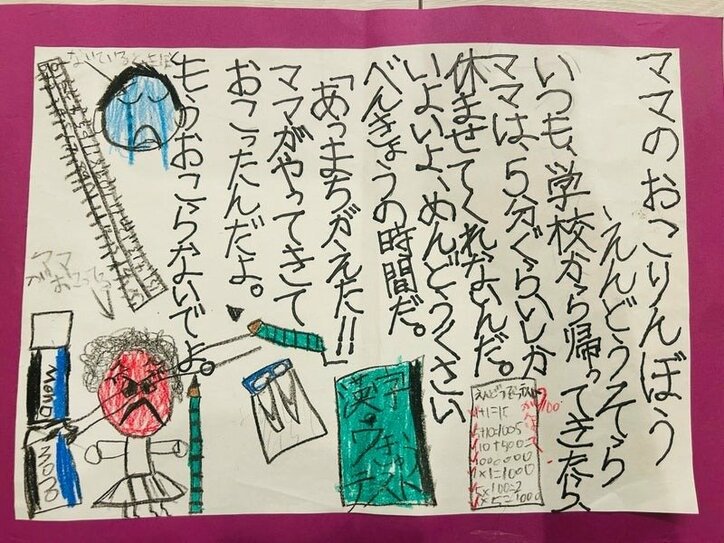 ママのおこりんぼう
えんどうそら
いつも、学校から帰ってきたら、
ママは、5分ぐらいしか
休ませてくれないんだ。
いよいよ、めんどうくさい
べんきょうの時間だ。
「あっまちがえた!!」
ママがやってきて
おこったんだよ。
もうおこらないでよ。
ないている
ママ
がおこってる
MONO
漢字